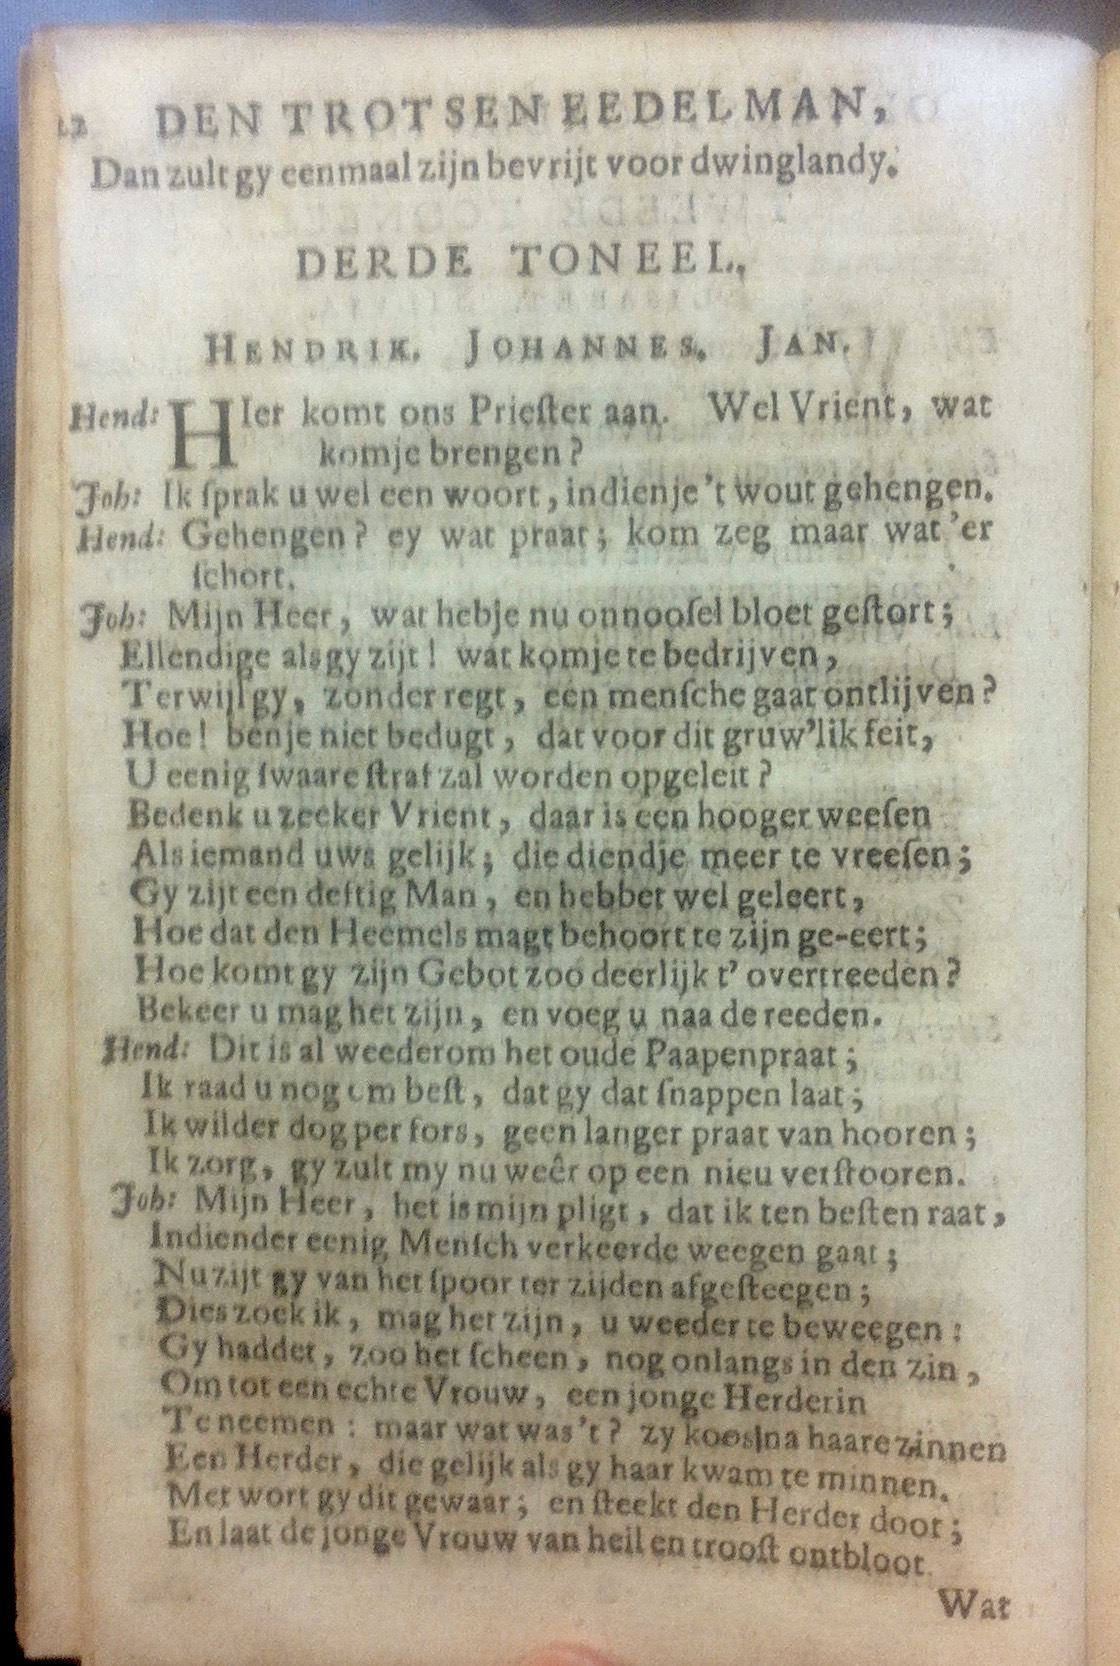 22 DEN TROTSEN EEDELMAN,
Dan zult gy eenmaal zijn bevrijt voor dwinglandy.
DERDE TONEEL.
HENDRIK. JOHANNES. JAN.
Hend: HIer komt ons Priester aan. Wel Vrient, wat
komje brengen?
Joh: Ik sprak u wel een woort, indienje 't wout gehengen.
Hend: Gehengen? ey wat praat; kom zeg maar wat 'er
schort.
Joh: Mijn Heer, wat hebje nu onnoosel bloet gestort;
Ellendige als gy zijt! wat komje te bedrijven,
Terwijl gy, zonder regt, een mensche gaat ontlijven?
Hoe! benje niet bedugt, dat voor dit gruw'lik feit,
U eenig swaare straf zal worden opgeleit?
Bedenk u zeeker Vrient, daar is een hooger weesen
Als iemand uws gelijk; die diendje meer te vreesen;
Gy zijt een deftig Man, en hebbet wel geleert,
Hoe dat den Heemels magt behoort te zijn ge-eert;
Hoe komt gy zijn Gebot zoo deerlijk t' overtreeden?
Bekeer u mag het zijn, en voeg u naa de reeden.
Hend: Dit is al weederom het oude Paapenpraat;
Ik raad u nog om best, dat gy dat snappen laat;
Ik wilder dog per fors, geen langer praat van hooren;
Ik zorg, gy zult my nu weêr op een nieu verstooren.
Joh: Mijn Heer, het is mijn pligt, dat ik ten besten raat,
Indiender eenig Mensch verkeerde weegen gaat;
Nu zijt gy van het spoor ter zijden afgesteegen;
Dies zoek ik, mag het zijn, u weeder te beweegen:
Gy haddet, zoo het scheen, nog onlangs in den zin,
Om tot een echte Vrouw, een jonge Herderin
Te neemen: maar wat was 't? zy koos na haare zinnen
Een Herder, die gelijk als gy haar kwam te minnen.
Met wort gy dit gewaar; en steekt den Herder doot;
En laat de jonge Vrouw van heil en troost ontbloot.
Wat